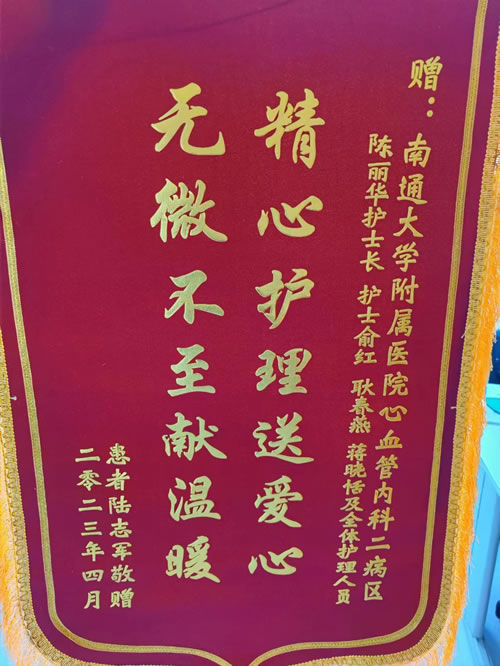 赠：南通大学附属医院心血管内科二病区
陈丽华护士长 护士俞红 耿春燕 蒋晓恬及全体护理人员
精心护理送爱心
无微不至献温暖
患者陆志军敬赠
二零二三年四月